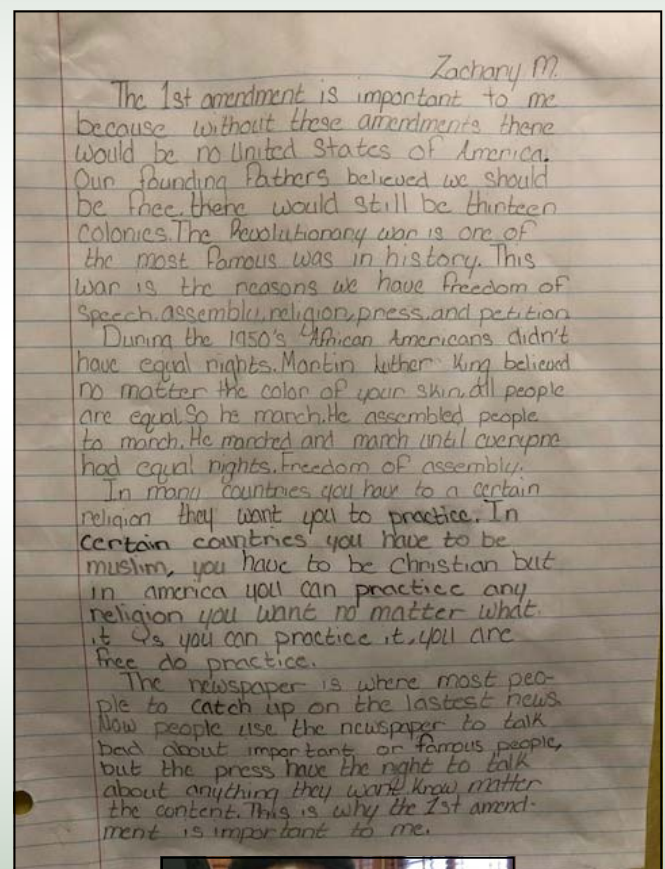 Zachary M.
The 1st amendment is important to me
because without these amendments there
would be no United States of America.
Our founding Fathers believed we should
be free. there would still be thirteen
colonies. The Revolutionary war is one of
the most famous was in history. This
war is the reasons we have freedom of
speech, assembly, religion, press, and petition
During the 1950's African Americans didn't
have equal rights. Martin luther King believed
no matter the color of your skin, all people
are equal. So he march. He assembled people
to march. He marched and march until everyone
had equal rights. Freedom of assembly.
In many countries you have to a certain
religion they want you to practice. In
certain countries you have to be
muslim, you have to be christian but
in america you can practice any
religion you want no matter what
it is you can practice it, you are
free do practice.
The newspaper is where most peo-
ple to catch up on the lastest news.
Now people use the newspaper to talk
bad about important or famous people,
but the press have the right to talk
about anything they want know matter
the content. This is why the 1st amend-
ment is important to me.